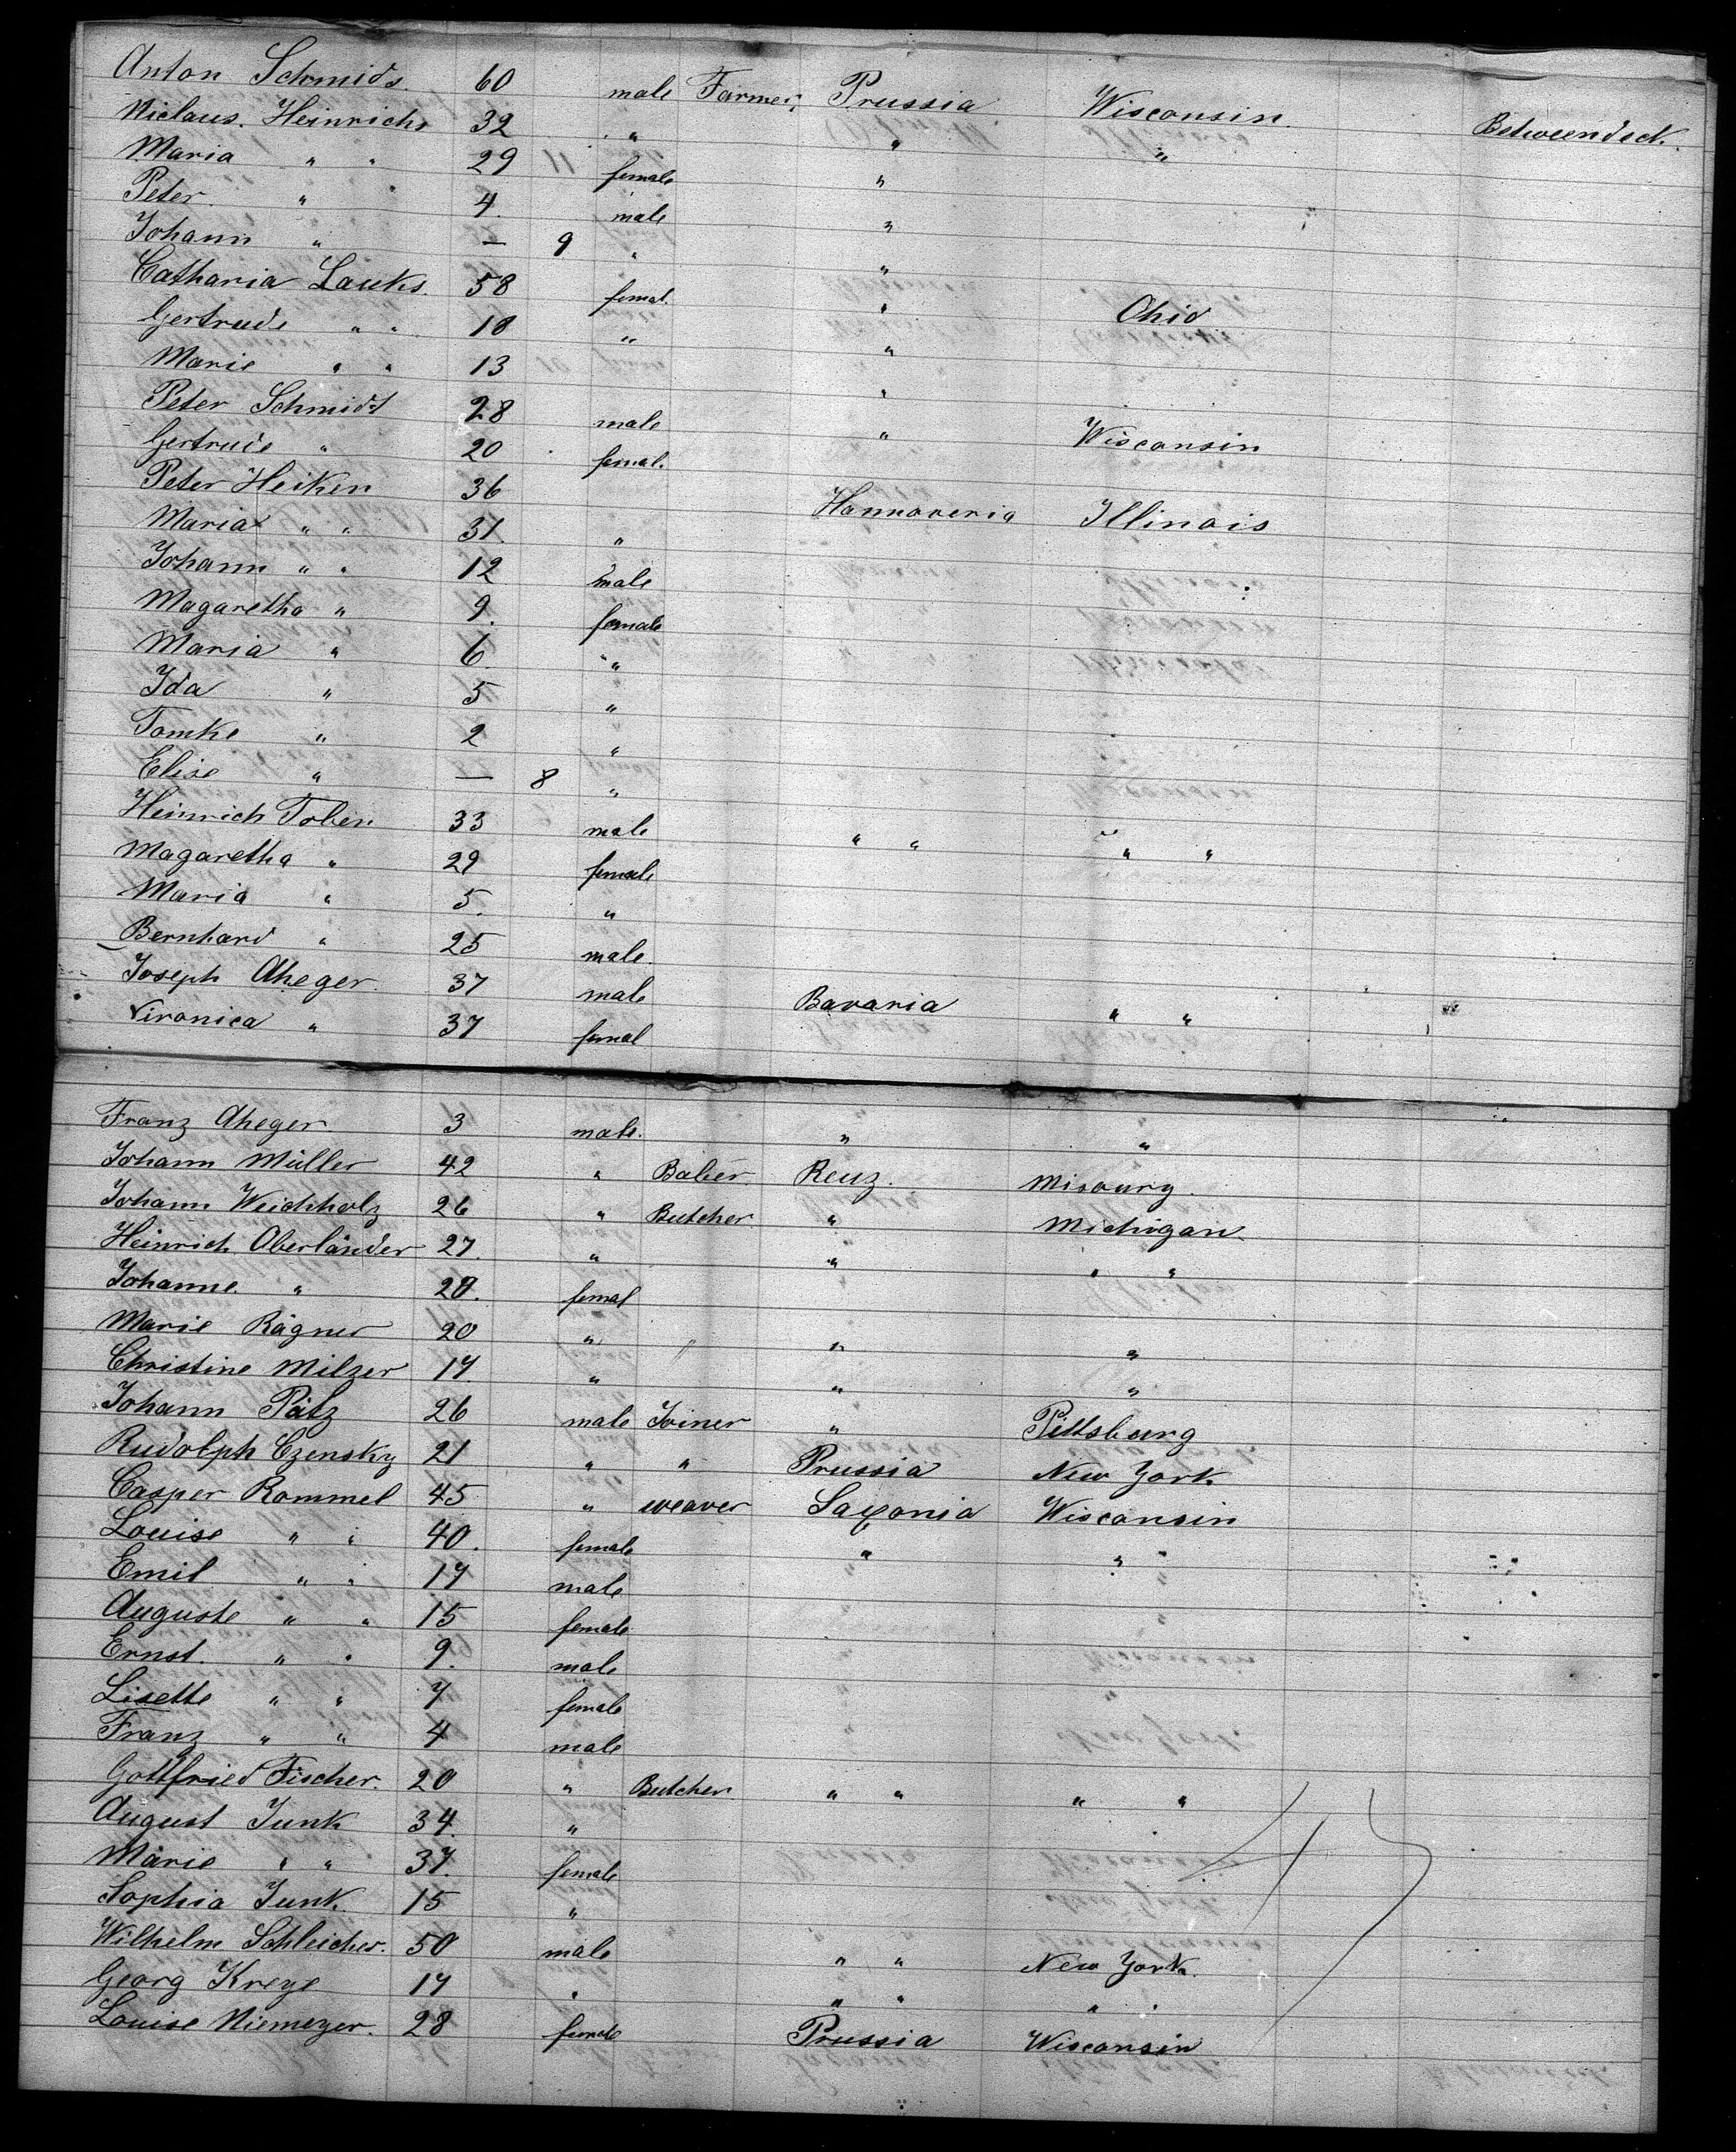 Anton Schmids. 60 male Farmer. Prussia Wisconsin. Betweendeck.
Niclaus. Heinrichs 32 " " "
Maria " " 29 11 female "
Peter. " 4. male "
Johann " — 9 " "
Catharia Lauks. 58 femal. " Ohio
Gertrude " " 18 " "
Marie " " 13 "
Peter Schmidt 28 male " Wisconsin
Gertrude " 20 femal.
Peter Heiken 36 Hannoveria Illinois
Maria " " 31. "
Johann " " 12 male
Magaretha " 9. female
Maria " 6. "
Ida " 5 "
Tomke " 2 "
Elise " — 8 "
Heinrich Toben 33 male " " " "
Magaretha " 29 female
Maria " 5. "
Bernhard " 25 male.
Joseph Aheger. 37 male Bavaria " "
Vironica " 37 femal
Franz Aheger 3 male. " "
Johann Müller 42 " Baker Reuz. Misoury.
Johann Weichholz 26 " Butcher " Michigan
Heinrich Oberländer 27. " " " "
Johanne. " 28. femal
Marie Rägner 20 " " "
Christine Milzer 17. " " "
Johann Pätz 26 male Joiner " Pittsburg
Rudolph Czensky 21 " " Prussia New York
Casper Rommel 45 " weaver Saxonia Wisconsin
Louise " " 40. female " "
Emil " " 17 male
Auguste " " 15 female
Ernst. " " 9. male
Lisette " " 7 female
Franz " " 4 male
Gottfried Fischer. 20 " Butcher " " " "
August Junk 34. "
Marie " " 37. female
Sophia Junk. 15 "
Wilhelm Schleicher. 50 male " " New York.
Georg Kreye 17 " " " " "
Louise Niemeyer. 28 female Prussia Wisconsin